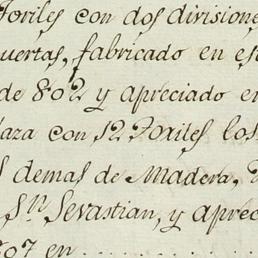 Toriles con dos divisione
uertas, fabricado en es
de 802 y apreciado en
laza con 12 Toriles los
s demas de Madera,
Sn Sevastian, y aprec
807 en . . . . . . . . . .